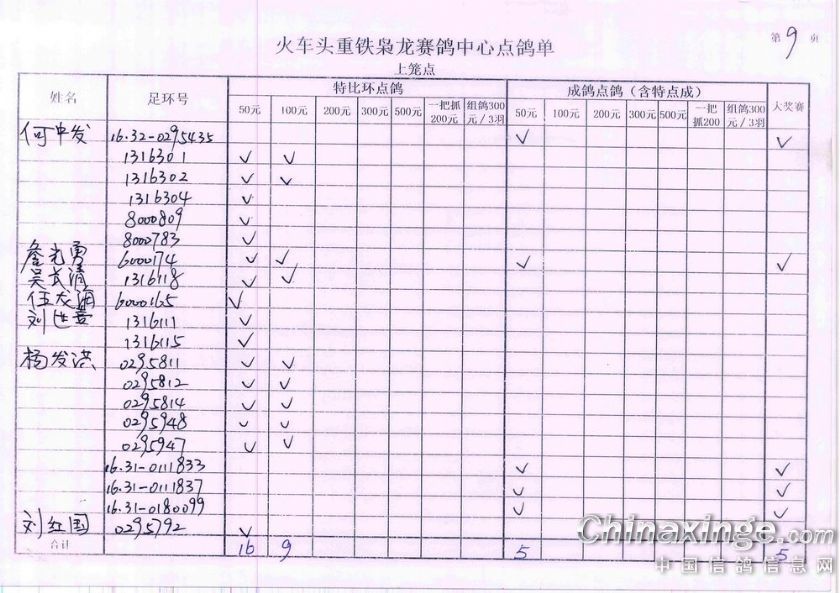 第 9 页
火车头重铁枭龙赛鸽中心点鸽单
上笼点
姓名 足环号 特比环点鸽 成鸽点鸽（含特点成） 大奖赛
50元 100元 200元 300元 500元 一把抓200元 组鸽300元／3羽 50元 100元 200元 300元 500元 一把抓200 组鸽300元／3羽
何中发 16.32-0295435 ✓ ✓
1316301 ✓ ✓
1316302 ✓ ✓
1316304 ✓
8000809 ✓
8000783 ✓
詹光勇 6000174 ✓ ✓ ✓ ✓
吴武清 1316118 ✓ ✓
伍龙 6000165 ✓
刘 1316111 ✓
1316115 ✓
杨发洪 0295811 ✓ ✓
0295812 ✓ ✓
0295814 ✓ ✓
0295948 ✓ ✓
0295947 ✓ ✓
16.31-0111833 ✓ ✓
16.31-0111837 ✓ ✓
16.31-0180099 ✓ ✓
刘红国 0295792 ✓
合计 16 9 5 5
Chinaxinge.com
中国信鸽信息网